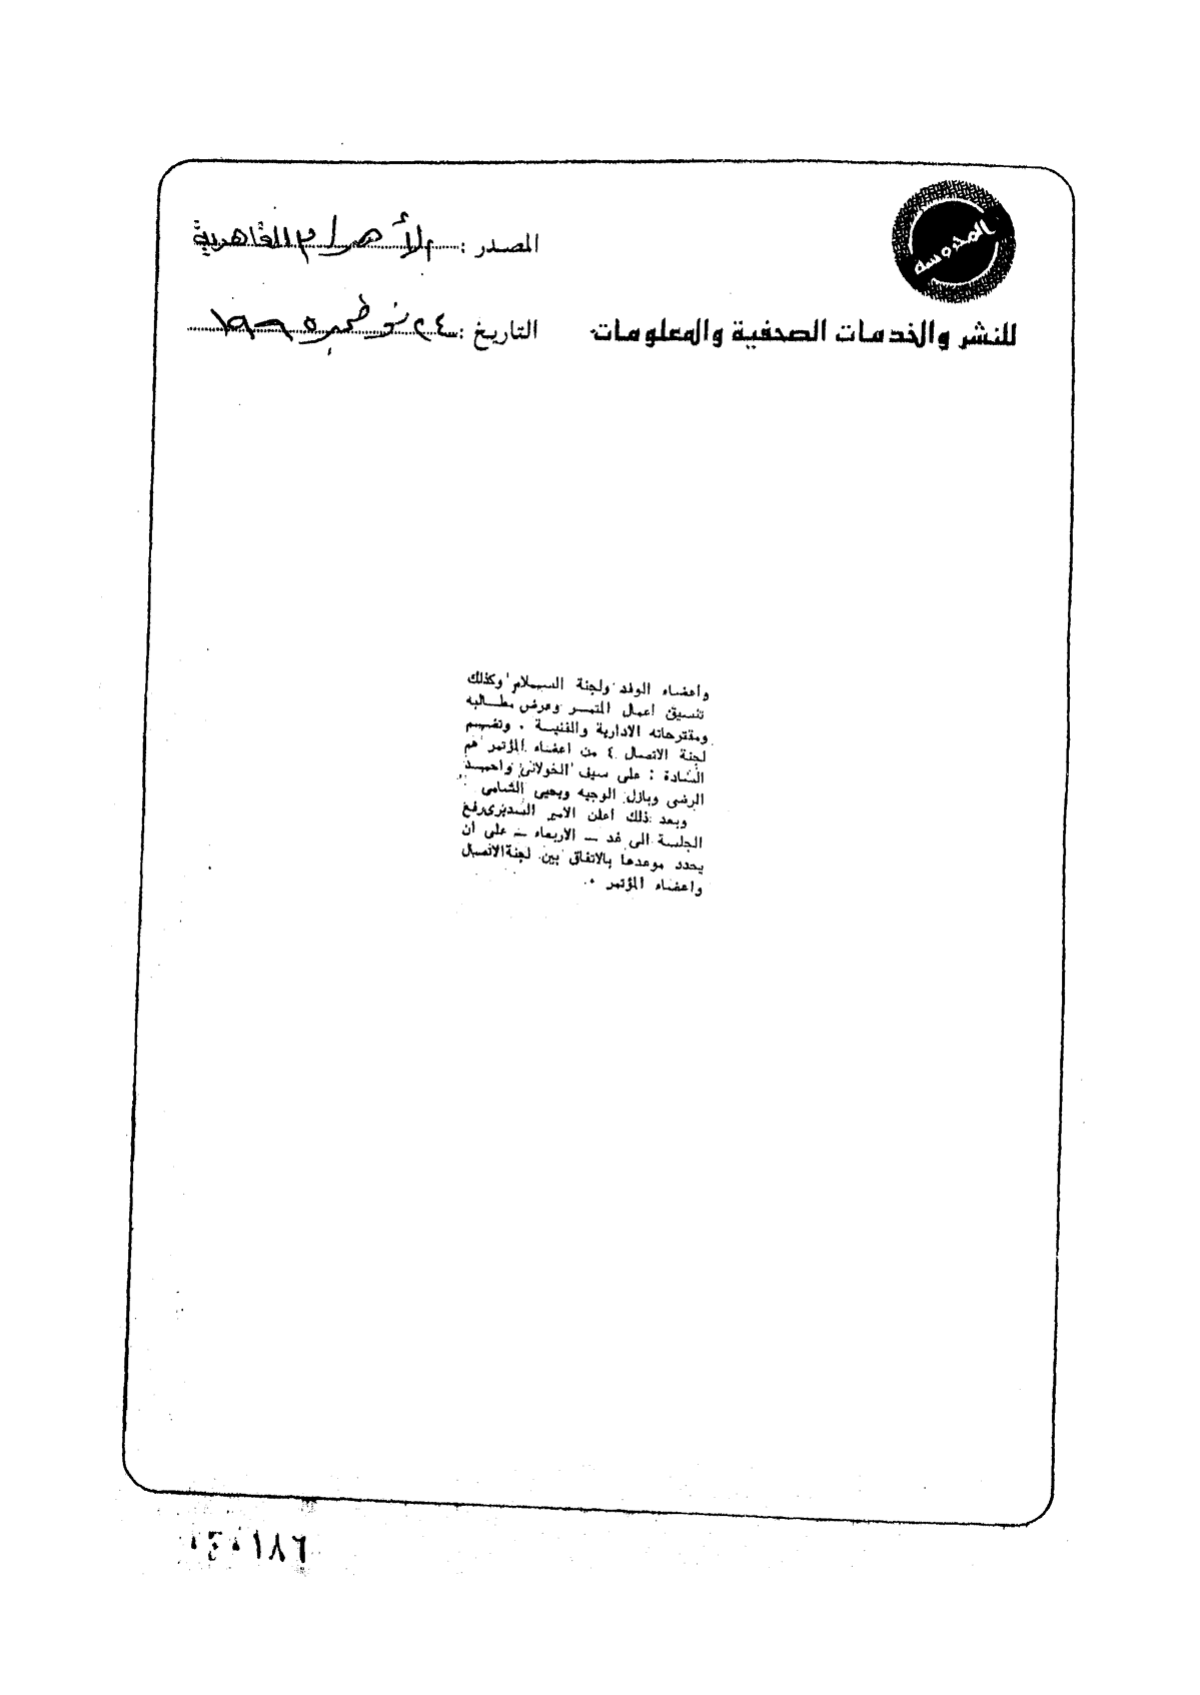 المحروسة
المصدر : الأهرام القاهرية
للنشر والخدمات الصحفية والمعلومات
التاريخ : ٢٤ نوفمبر ١٩٦٥
وأعضاء الوفد ولجنة السلام وكذلك
تنسيق أعمال المتمر وعرض مطالبه
ومقترحاته الادارية والفنية . وتضم
لجنة الاتصال ٤ من اعضاء المؤتمر هم
السادة : على سيف الخولانى واحمد
الرضى وبازل الوجيه ويحيى الشامى
وبعد ذلك أعلن الامير السديرى رفع
الجلسة الى غد ــ الاربعاء ــ على ان
يحدد موعدها بالاتفاق بين لجنة الاتصال
واعضاء المؤتمر .